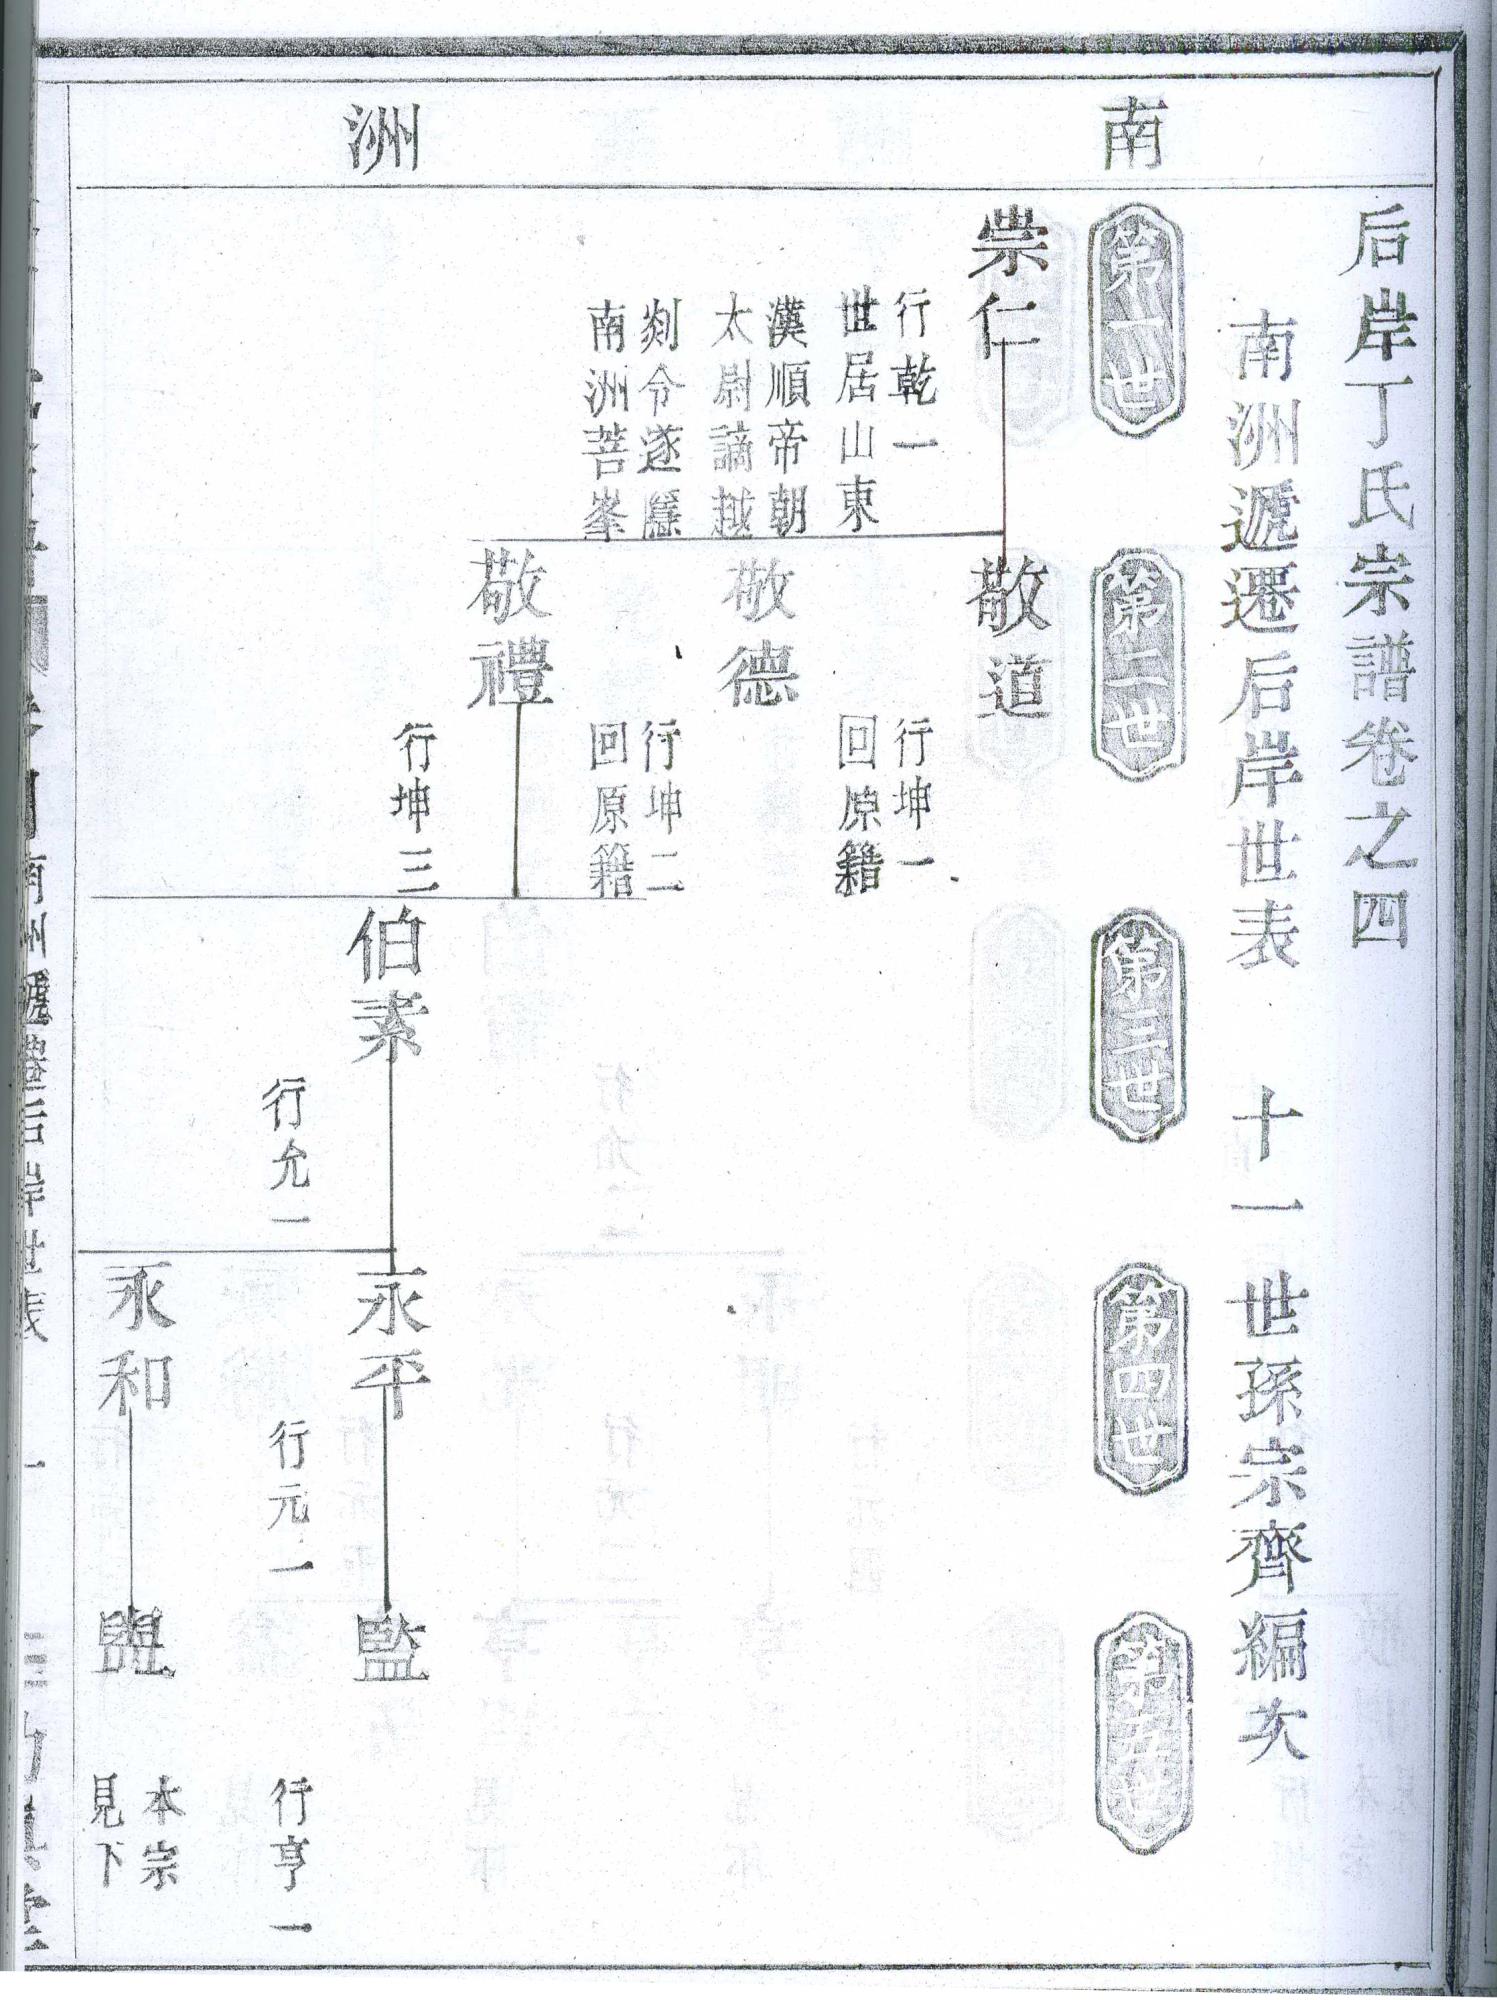 南
洲
后岸丁氏宗譜卷之四
南洲遞遷后岸世表 十一世孫宗齊編次
第一世
第二世
第三世
第四世
第五世
崇仁
行乾一
世居山東
漢順帝朝
太尉謫越
剡令遂隱
南洲菩峯
敬道
行坤一
回原籍
敬德
行坤二
回原籍
敬禮
行坤三
伯素
行允一
永平
行元一
永和
監
行亨一
本宗
見下
南洲遞遷后岸世表
一